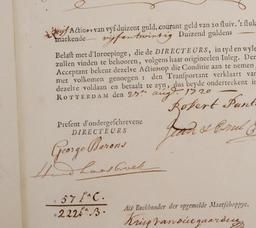 Actien van vyf duizent guld. courant geld van 20 stuiv. 't stuk
makende vyfentwintig Duizend guldens
Belast met d'Inroepinge, die de DIRECTEURS, in tyd en wyle
zullen vinden te behooren, volgens haar origineelen Inleg. Den
Acceptant bekent dezelve Actie op die Conditie aan te nemen
met volkomen genoegen: den Transportant verklaart van
dezelve voldaan en betaalt te zyn, dus beyde onderteekent in
ROTTERDAM den 27en aug. 1720
Robert
Present d'ondergeschrevene
DIRECTEURS
George Barons
57 C.
222 B.
Als Boekhouder der opgemelde Maetschappye.